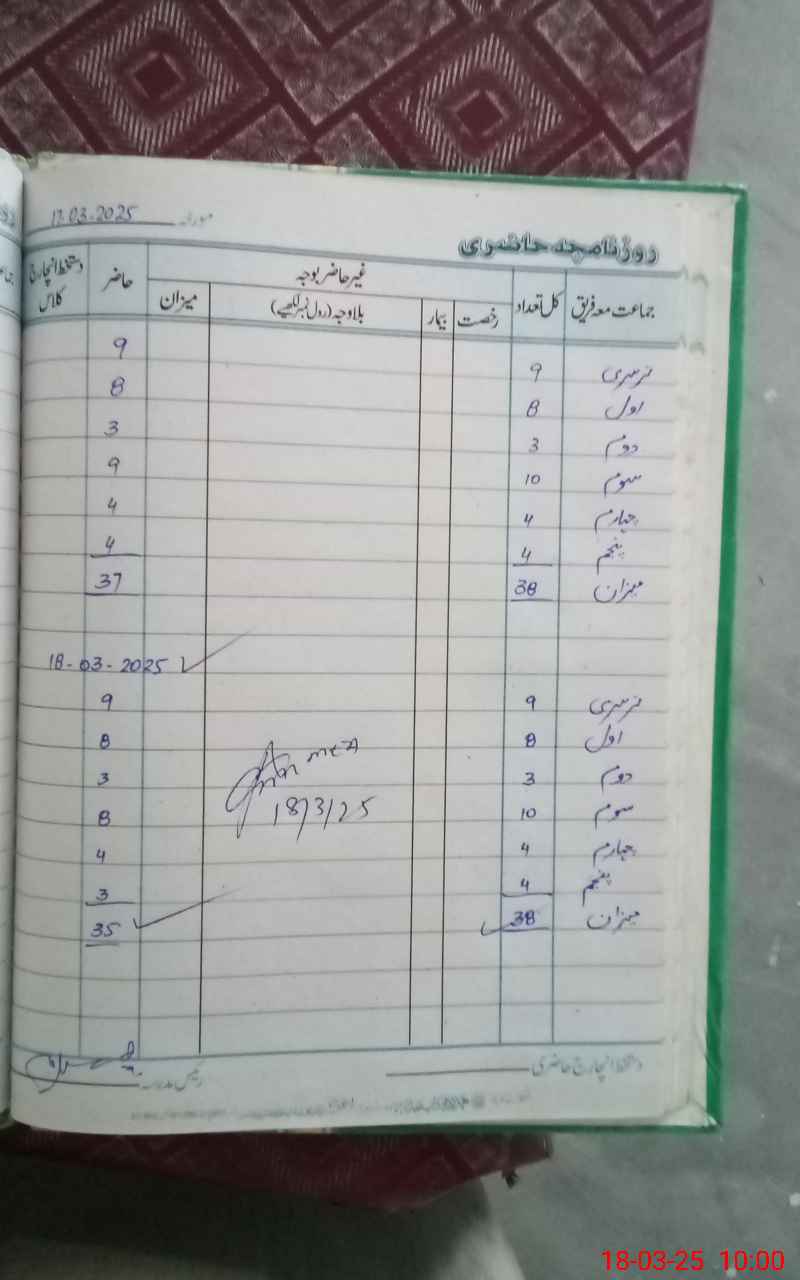 مورخہ 17-03-2025
روزنامچہ حاضری
جماعت معہ فریق کل تعداد غیر حاضر بوجہ حاضر دستخط انچارج کلاس
رخصت بیمار بلاوجہ (رول نمبر لکھیے) میزان
نرسری 9 9
اول 8 8
دوم 3 3
سوم 10 9
چہارم 4 4
پنجم 4 4
میزان 38 37
18-03-2025
نرسری 9 9
اول 8 8
دوم 3 3
سوم 10 8
چہارم 4 4
پنجم 4 3
میزان 38 35
18/3/25
دستخط انچارج حاضری رئیس مدرسہ
18-03-25 10:00